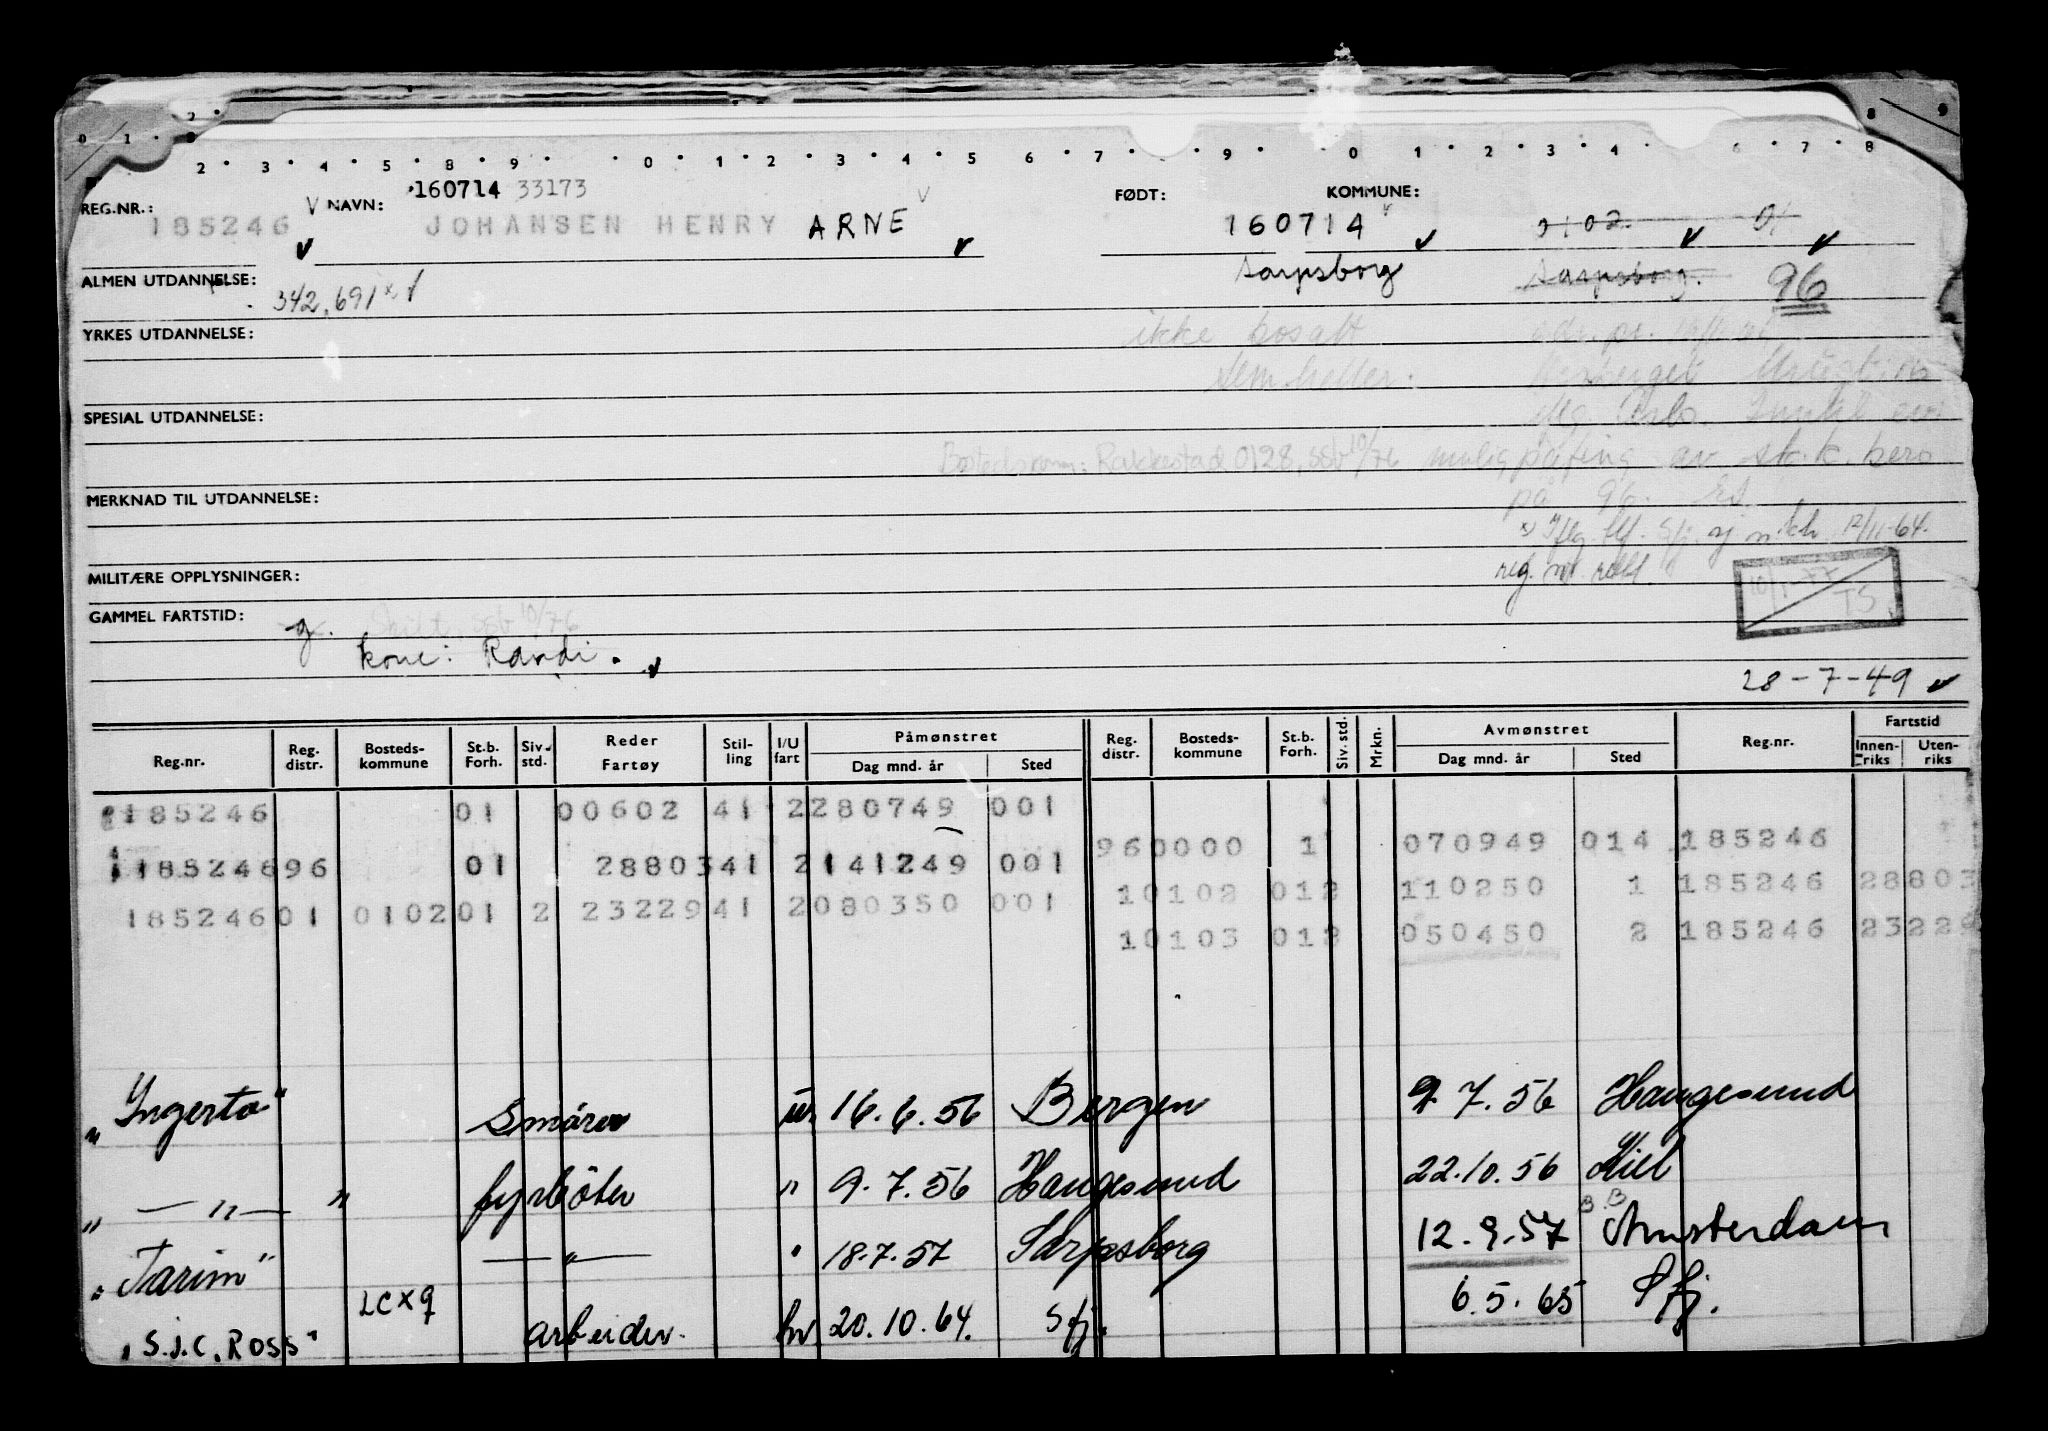 2
0 1 8 8 9
2 3 4 5 8 9 0 1 2 3 4 5 6 7 9 0 1 2 3 4 6 7 8
REG.NR.: 185246 V NAVN: 160714 33173 FØDT: KOMMUNE:
JOHANSEN HENRY ARNE 160714 0102 01
ALMEN UTDANNELSE: 342,691 x Sarpsborg Sarpsborg. 96
YRKES UTDANNELSE: ikke bosatt
SPESIAL UTDANNELSE: Oslo.
Bostedskom: Rakkestad 0128, SSb 10/76 mulig av st.k. bero
MERKNAD TIL UTDANNELSE: på 96.
12/11-64.
MILITÆRE OPPLYSNINGER: reg. nr. rettet
10/1-77 TS
GAMMEL FARTSTID: g. Skilt, SSb 10/76
kone: Randi.
28-7-49
Reg.nr. Reg. distr. Bosteds-kommune St.b. Forh. Siv. std. Reder Fartøy Stil-ling I/U fart Påmønstret Dag mnd. år Sted Reg. distr. Bosteds-kommune St.b. Forh. Siv. std. Mrkn. Avmønstret Dag mnd. år Sted Reg.nr. Fartstid Innen-riks Uten-riks
185246 01 00602 41 2 280749 001
960000 1 070949 014 185246
185246 96 01 28803 41 2 141249 001
10102 012 110250 1 185246 28803
185246 01 0102 01 2 23229 41 2 080350 001
10103 012 050450 2 185246 23229
"Ingerto" Smører ur 16.6.56 Bergen 9.7.56 Haugesund
" — " — " fyrbøter " 9.7.56 Haugesund 22.10.56 Kiel
B.B
"Tarim" — " — " 18.7.57 Sarpsborg 12.9.57 Amsterdam
"S.J.C. ROSS" LCXQ arbeider. hv 20.10.64. Sfj. 6.5.65 Sfj.